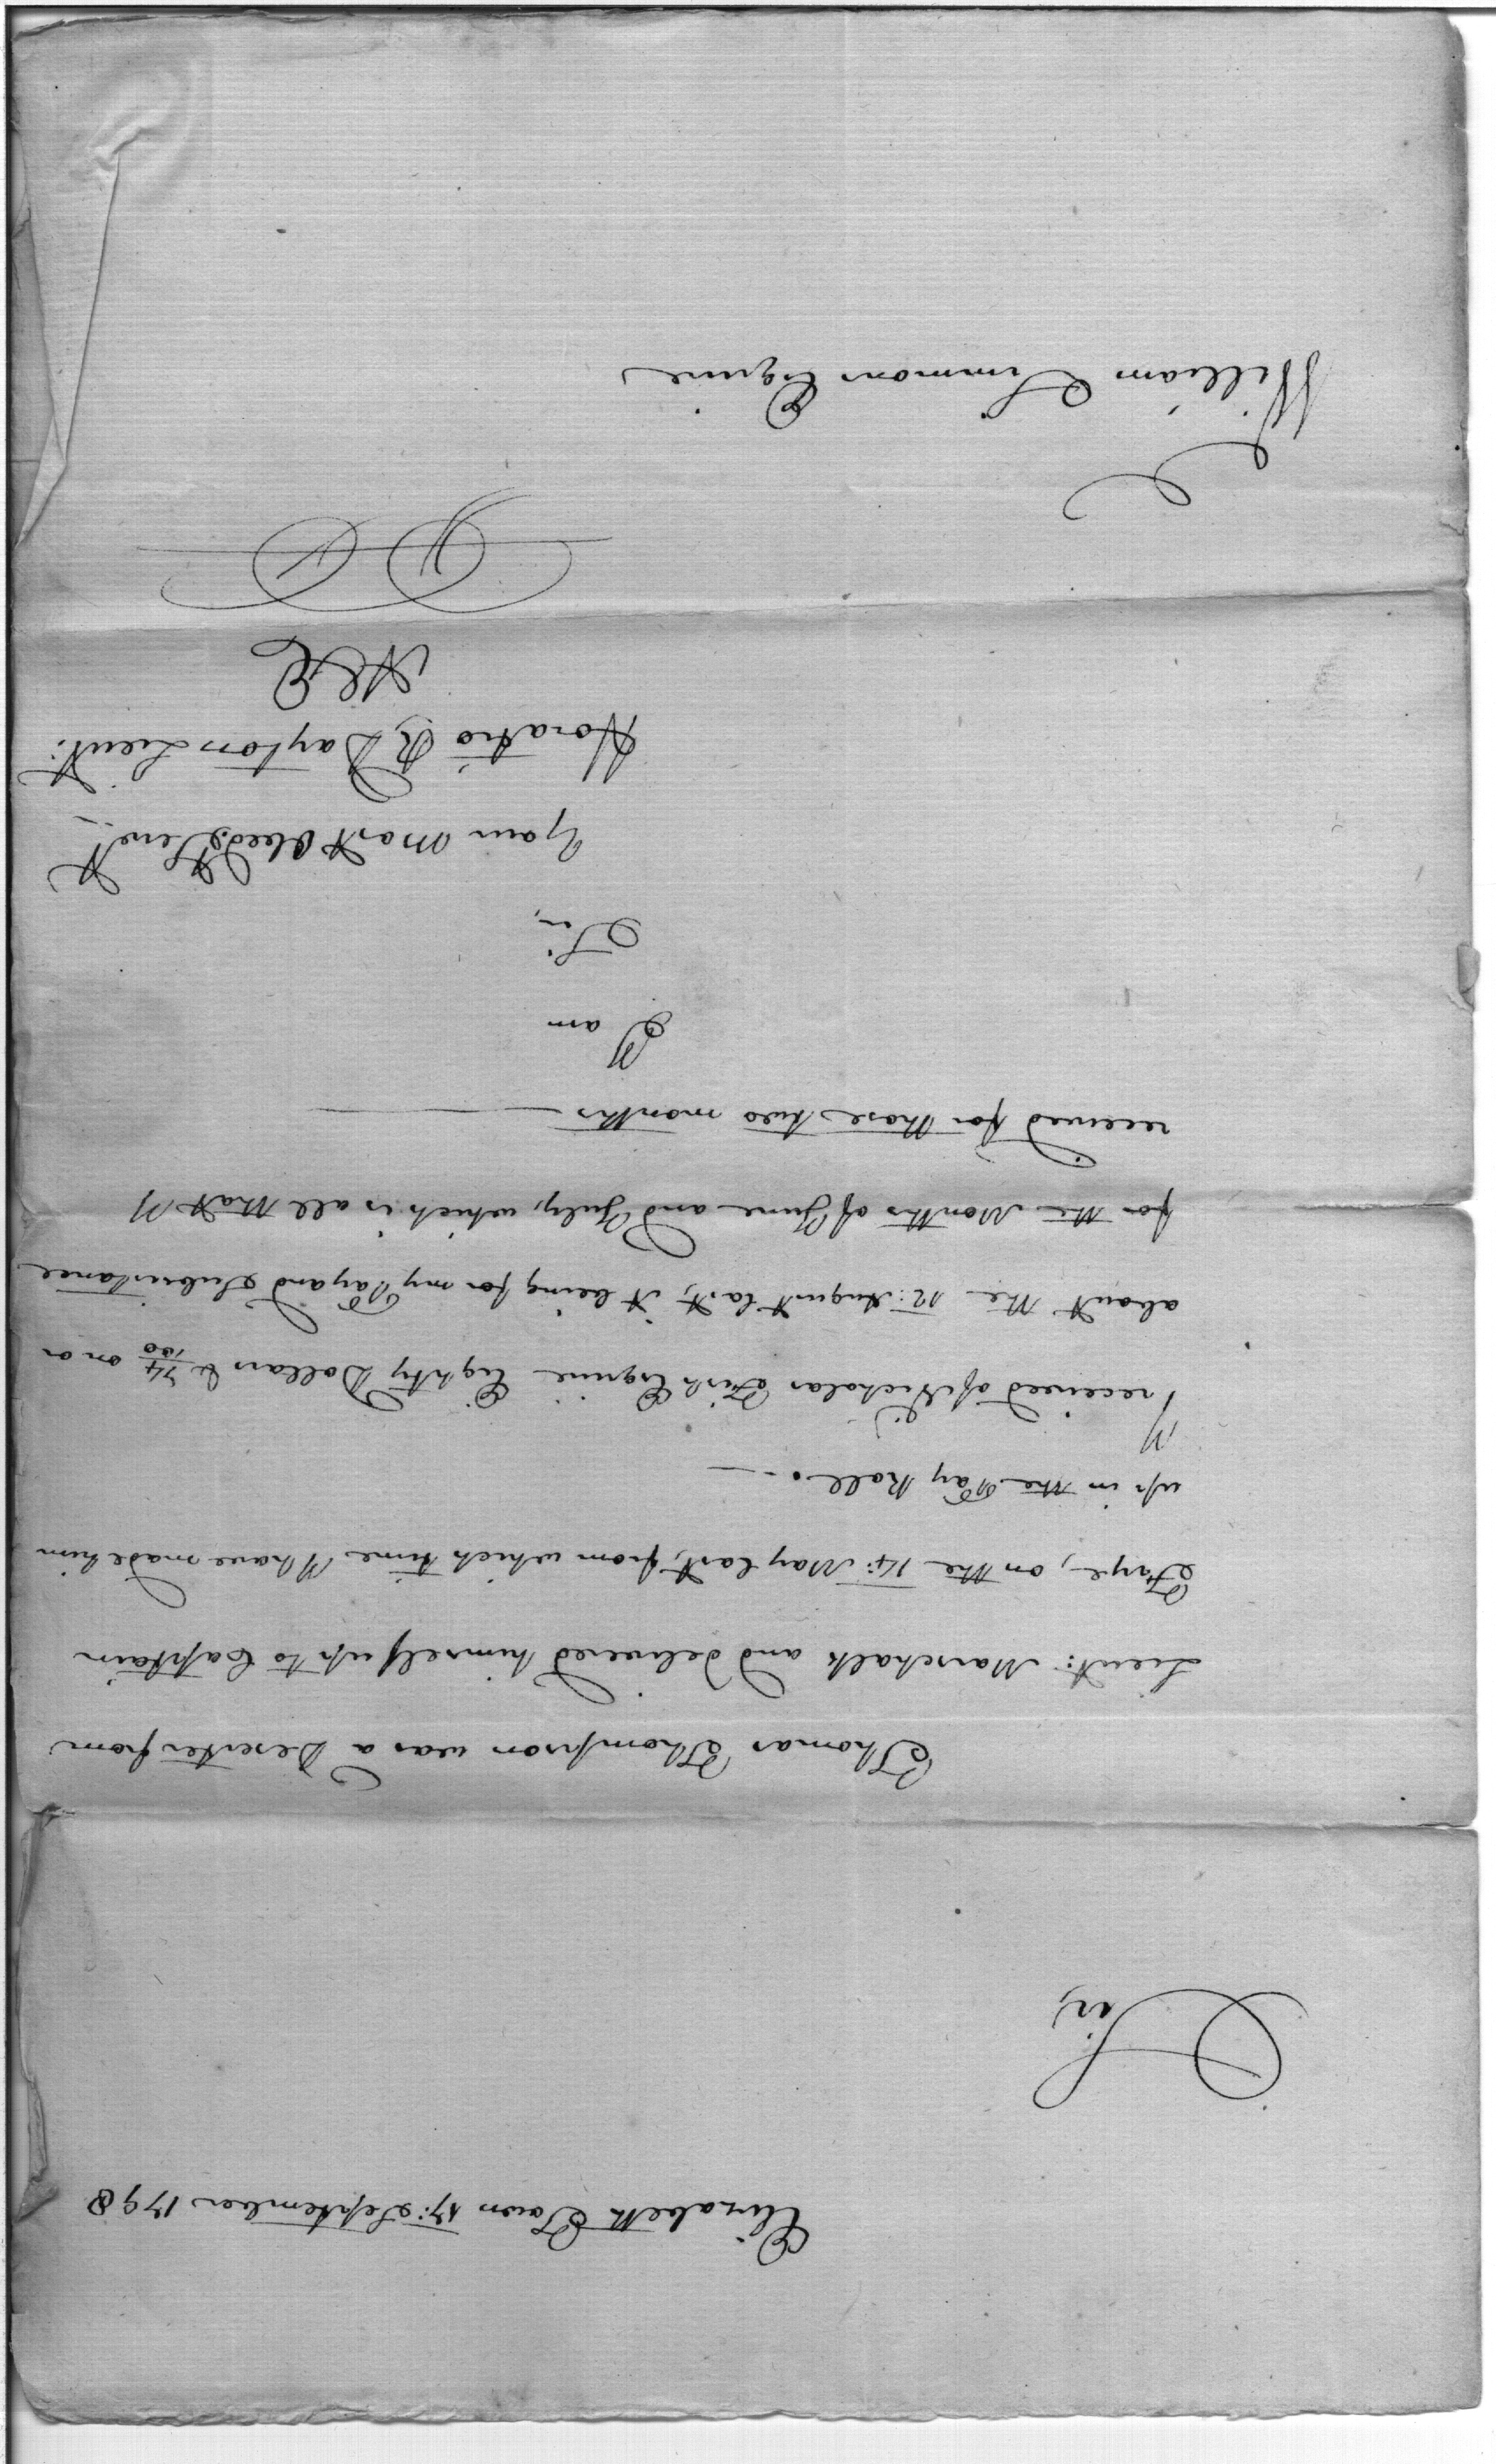 Elizabeth Town 17: September 1798
Sir,
Thomas Thompson was a Deserter from
Lieut: Marschalk and delivered himself up to Captain
Frye, on the 14: May last, from which time I have made him
up in the Pay Roll.
I received of Nicholas Fish Esquire Eighty Dollars & 74/100 on or
about the 12: August last, it being for my Pay and Subsistance
for the Months of June and July, which is all that I
received for those two months
I am
Sir,
Your Most Obed.t Serv.t
Horatio R Dayton Lieut:
William Simmons Esquire